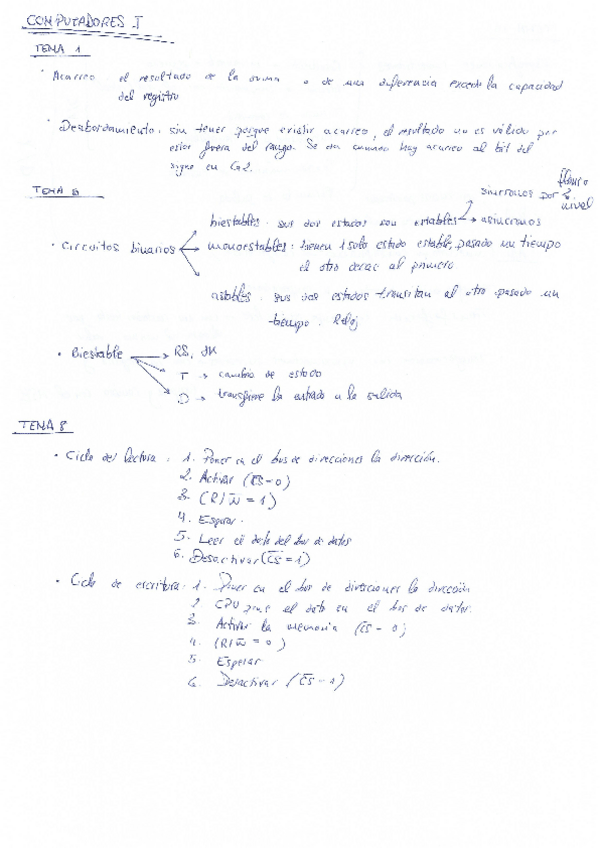 COMPUTADORES I
TEMA 1
· Acarreo: el resultado de la suma o de una diferencia excede la capacidad
del registro
· Desbordamiento: sin tener porque existir acarreo, el resultado no es válido por
estar fuera del rango. Se da cuando hay acarreo al bit del
signo en Ca2.
flanco
sincronos por nivel
TEMA 6
biestables: sus dos estados son estables → asincronos
· Circuitos binarios monoestables: tienen 1 solo estado estable, pasado un tiempo
el otro decae al primero
astables: sus dos estados transitan al otro pasado un
tiempo. Reloj
· Biestable → RS, JK
T → cambio de estado
D → transfiere la entrada a la salida
TEMA 8
· Ciclo del lectura: 1. Poner en el bus de direcciones la dirección.
2. Activar (C̅S̅=0)
3. (R/W̅=1)
4. Esperar.
5. Leer el dato del bus de datos
6. Desactivar (C̅S̅=1)
· Ciclo de escritura: 1. Poner en el bus de direcciones la dirección
2. CPU pone el dato en el bus de datos.
3. Activar la memoria (C̅S̅=0)
4. (R/W̅=0)
5. Esperar
6. Desactivar (C̅S̅=1)